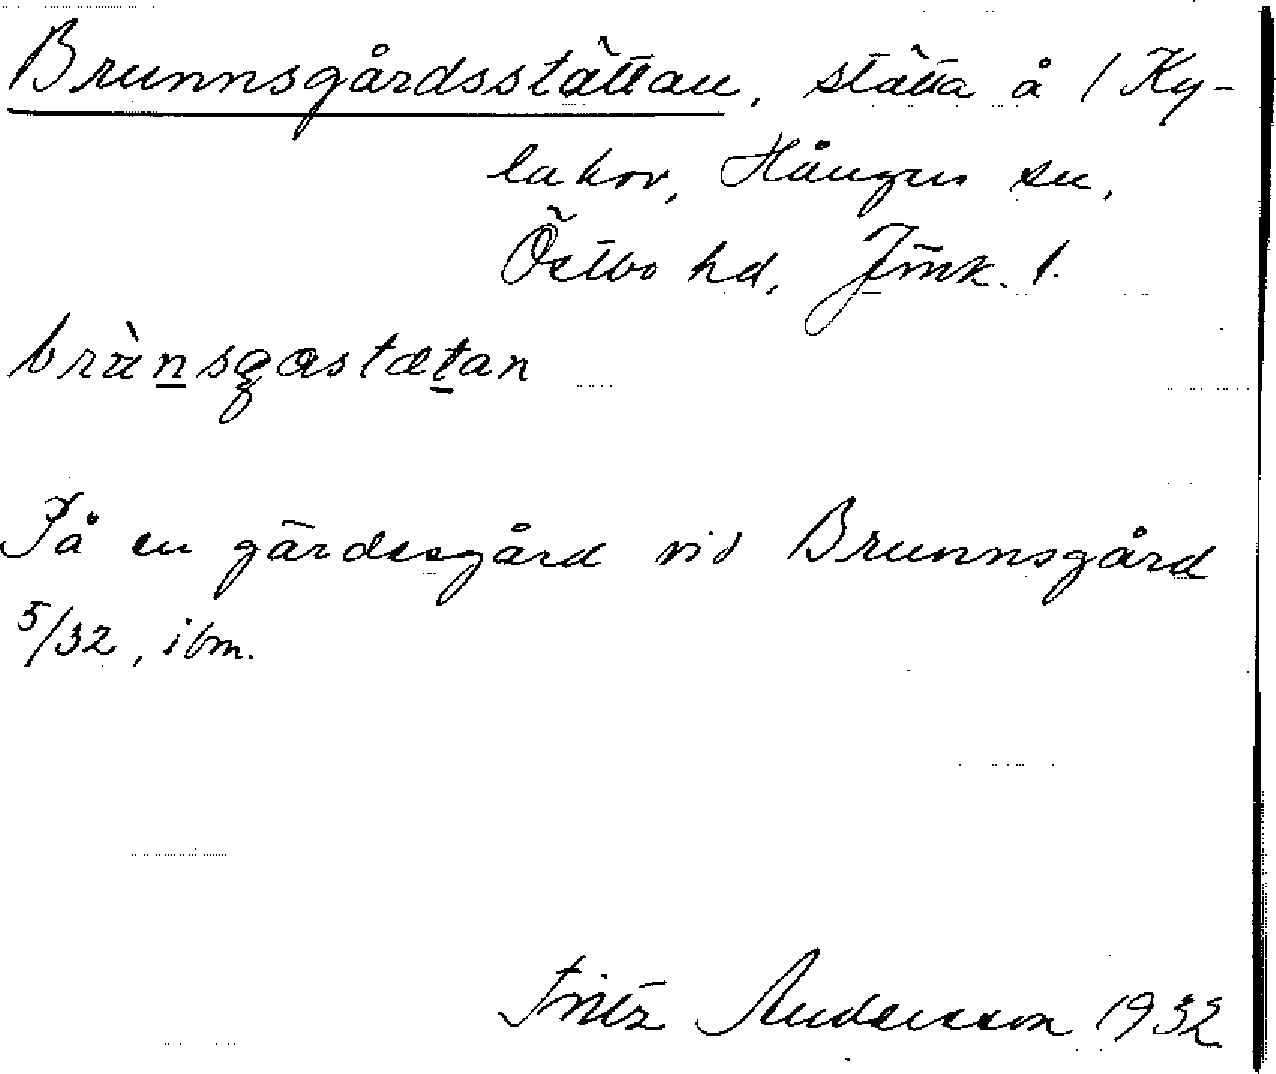 Brunnsgårdsstättan, stätta å 1 Ky-
lahov, Hånger sn,
Östbo hd, Jmk. l.
brùnsgastætan
På en gärdesgård vid Brunnsgård
5/32, ibm.
Fritz Andersson 1932